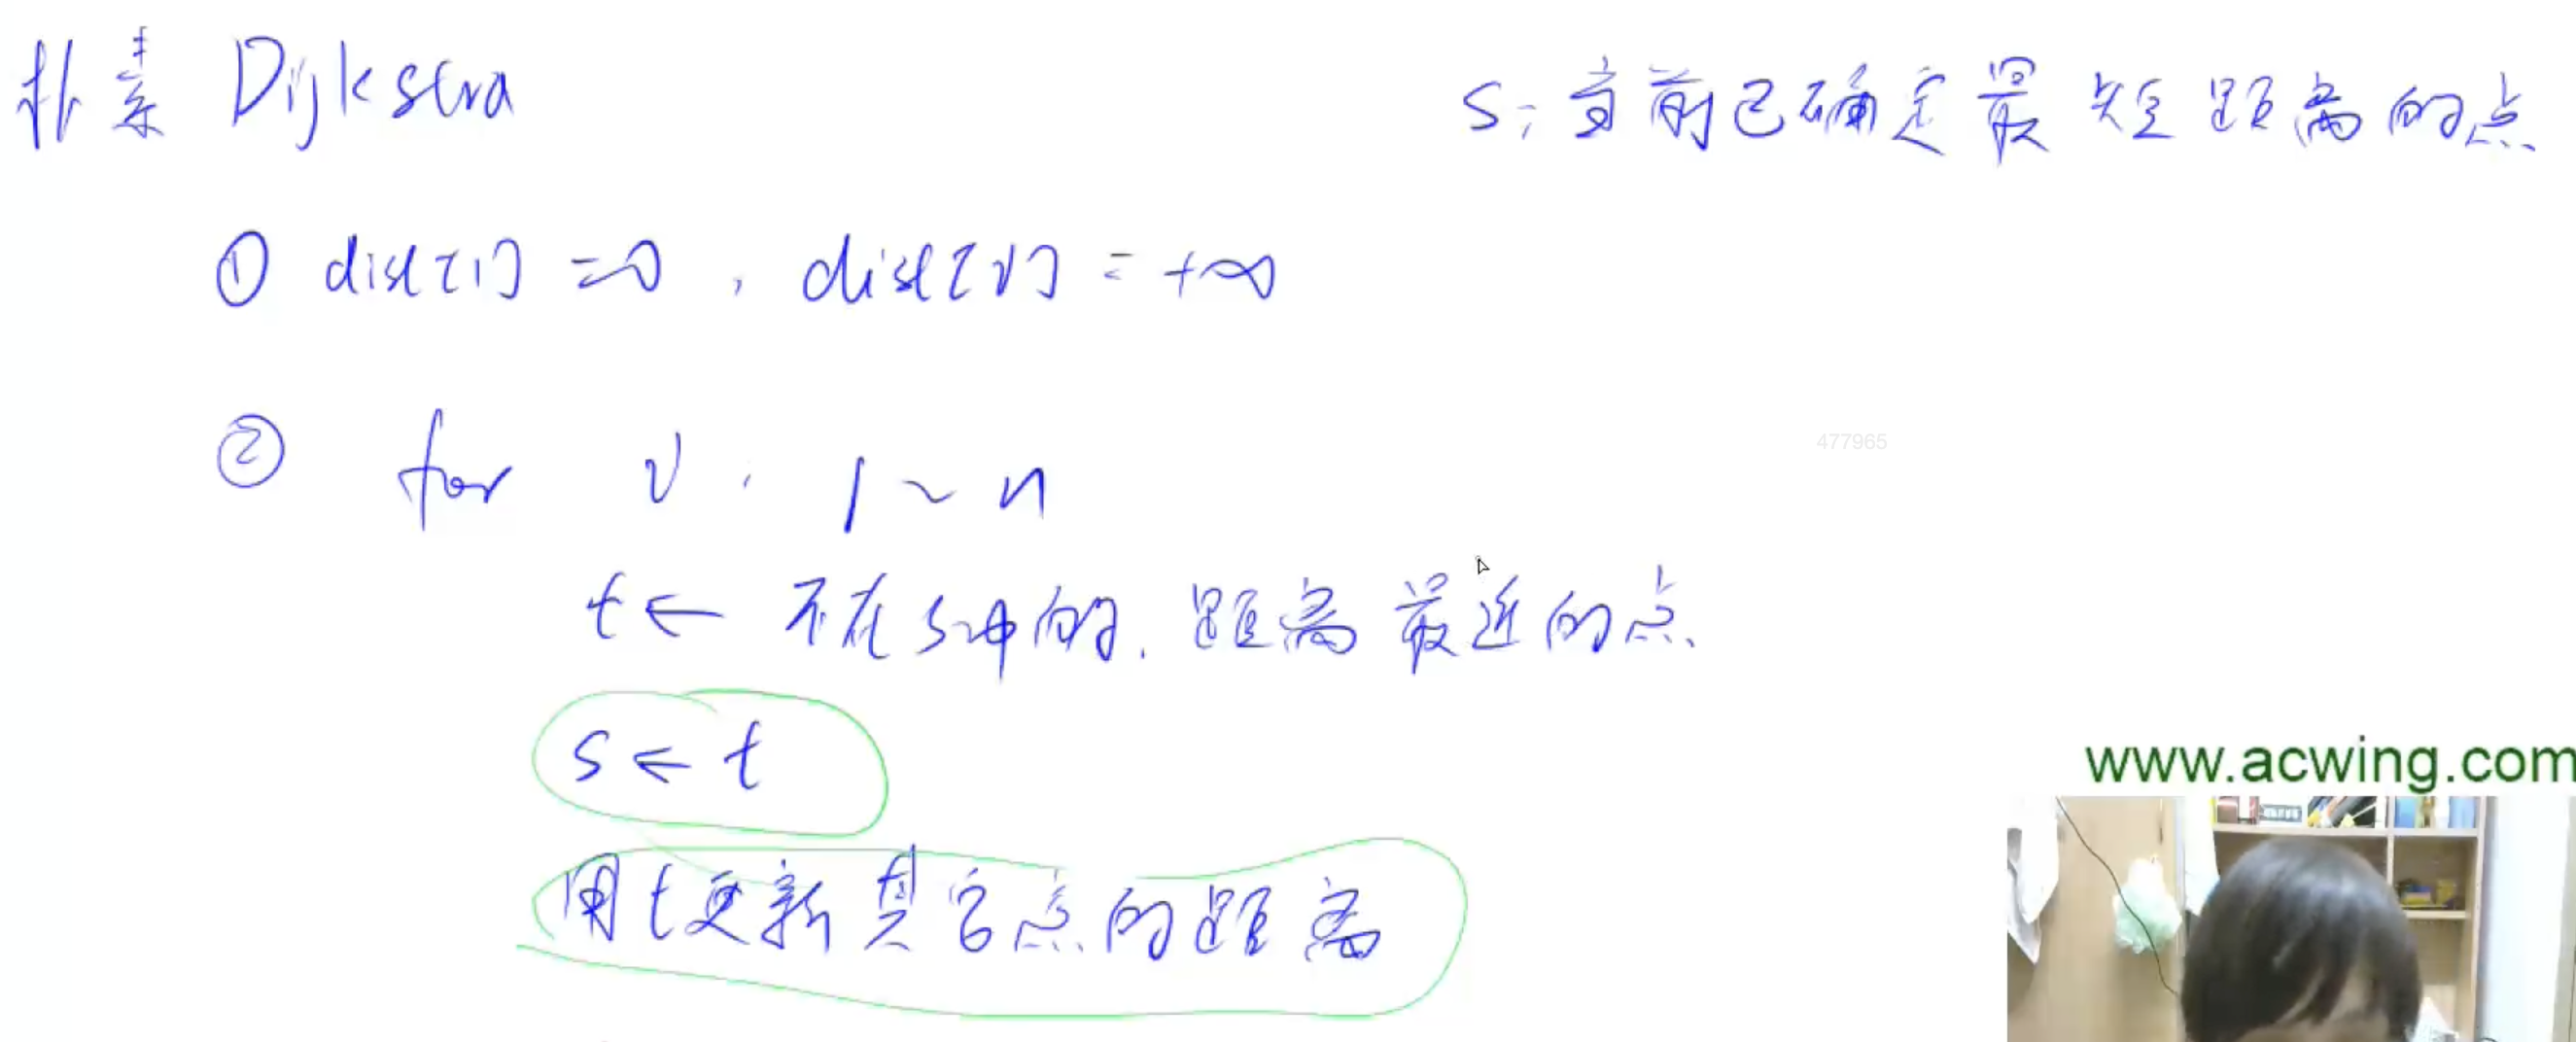 朴素 Dijkstra
s: 当前已确定最短距离的点
① dist[1] = 0, dist[v] = +∞
② for v: 1 ~ n
477965
t ← 不在s中的,距离最近的点
s ← t
www.acwing.com
用t更新其它点的距离